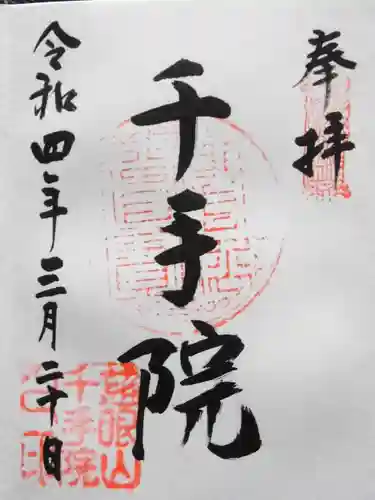 奉拝
千手院
令和四年三月二十日
慈眼山
千手院